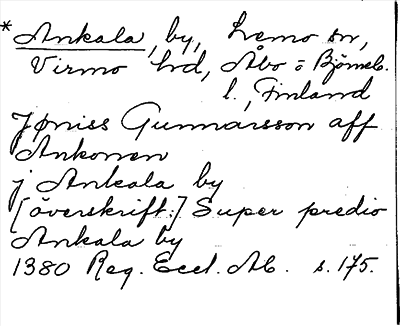 * Ankala, by, Lemo sn,
Virmo hd, Åbo o Björneb.
l., Finland
Jøniss Gunnarsson aff
Ankonen
j Ankala by
[överskrift:] Super predio
Ankala by
1380 Reg. Eccl. Ab. s. 175.